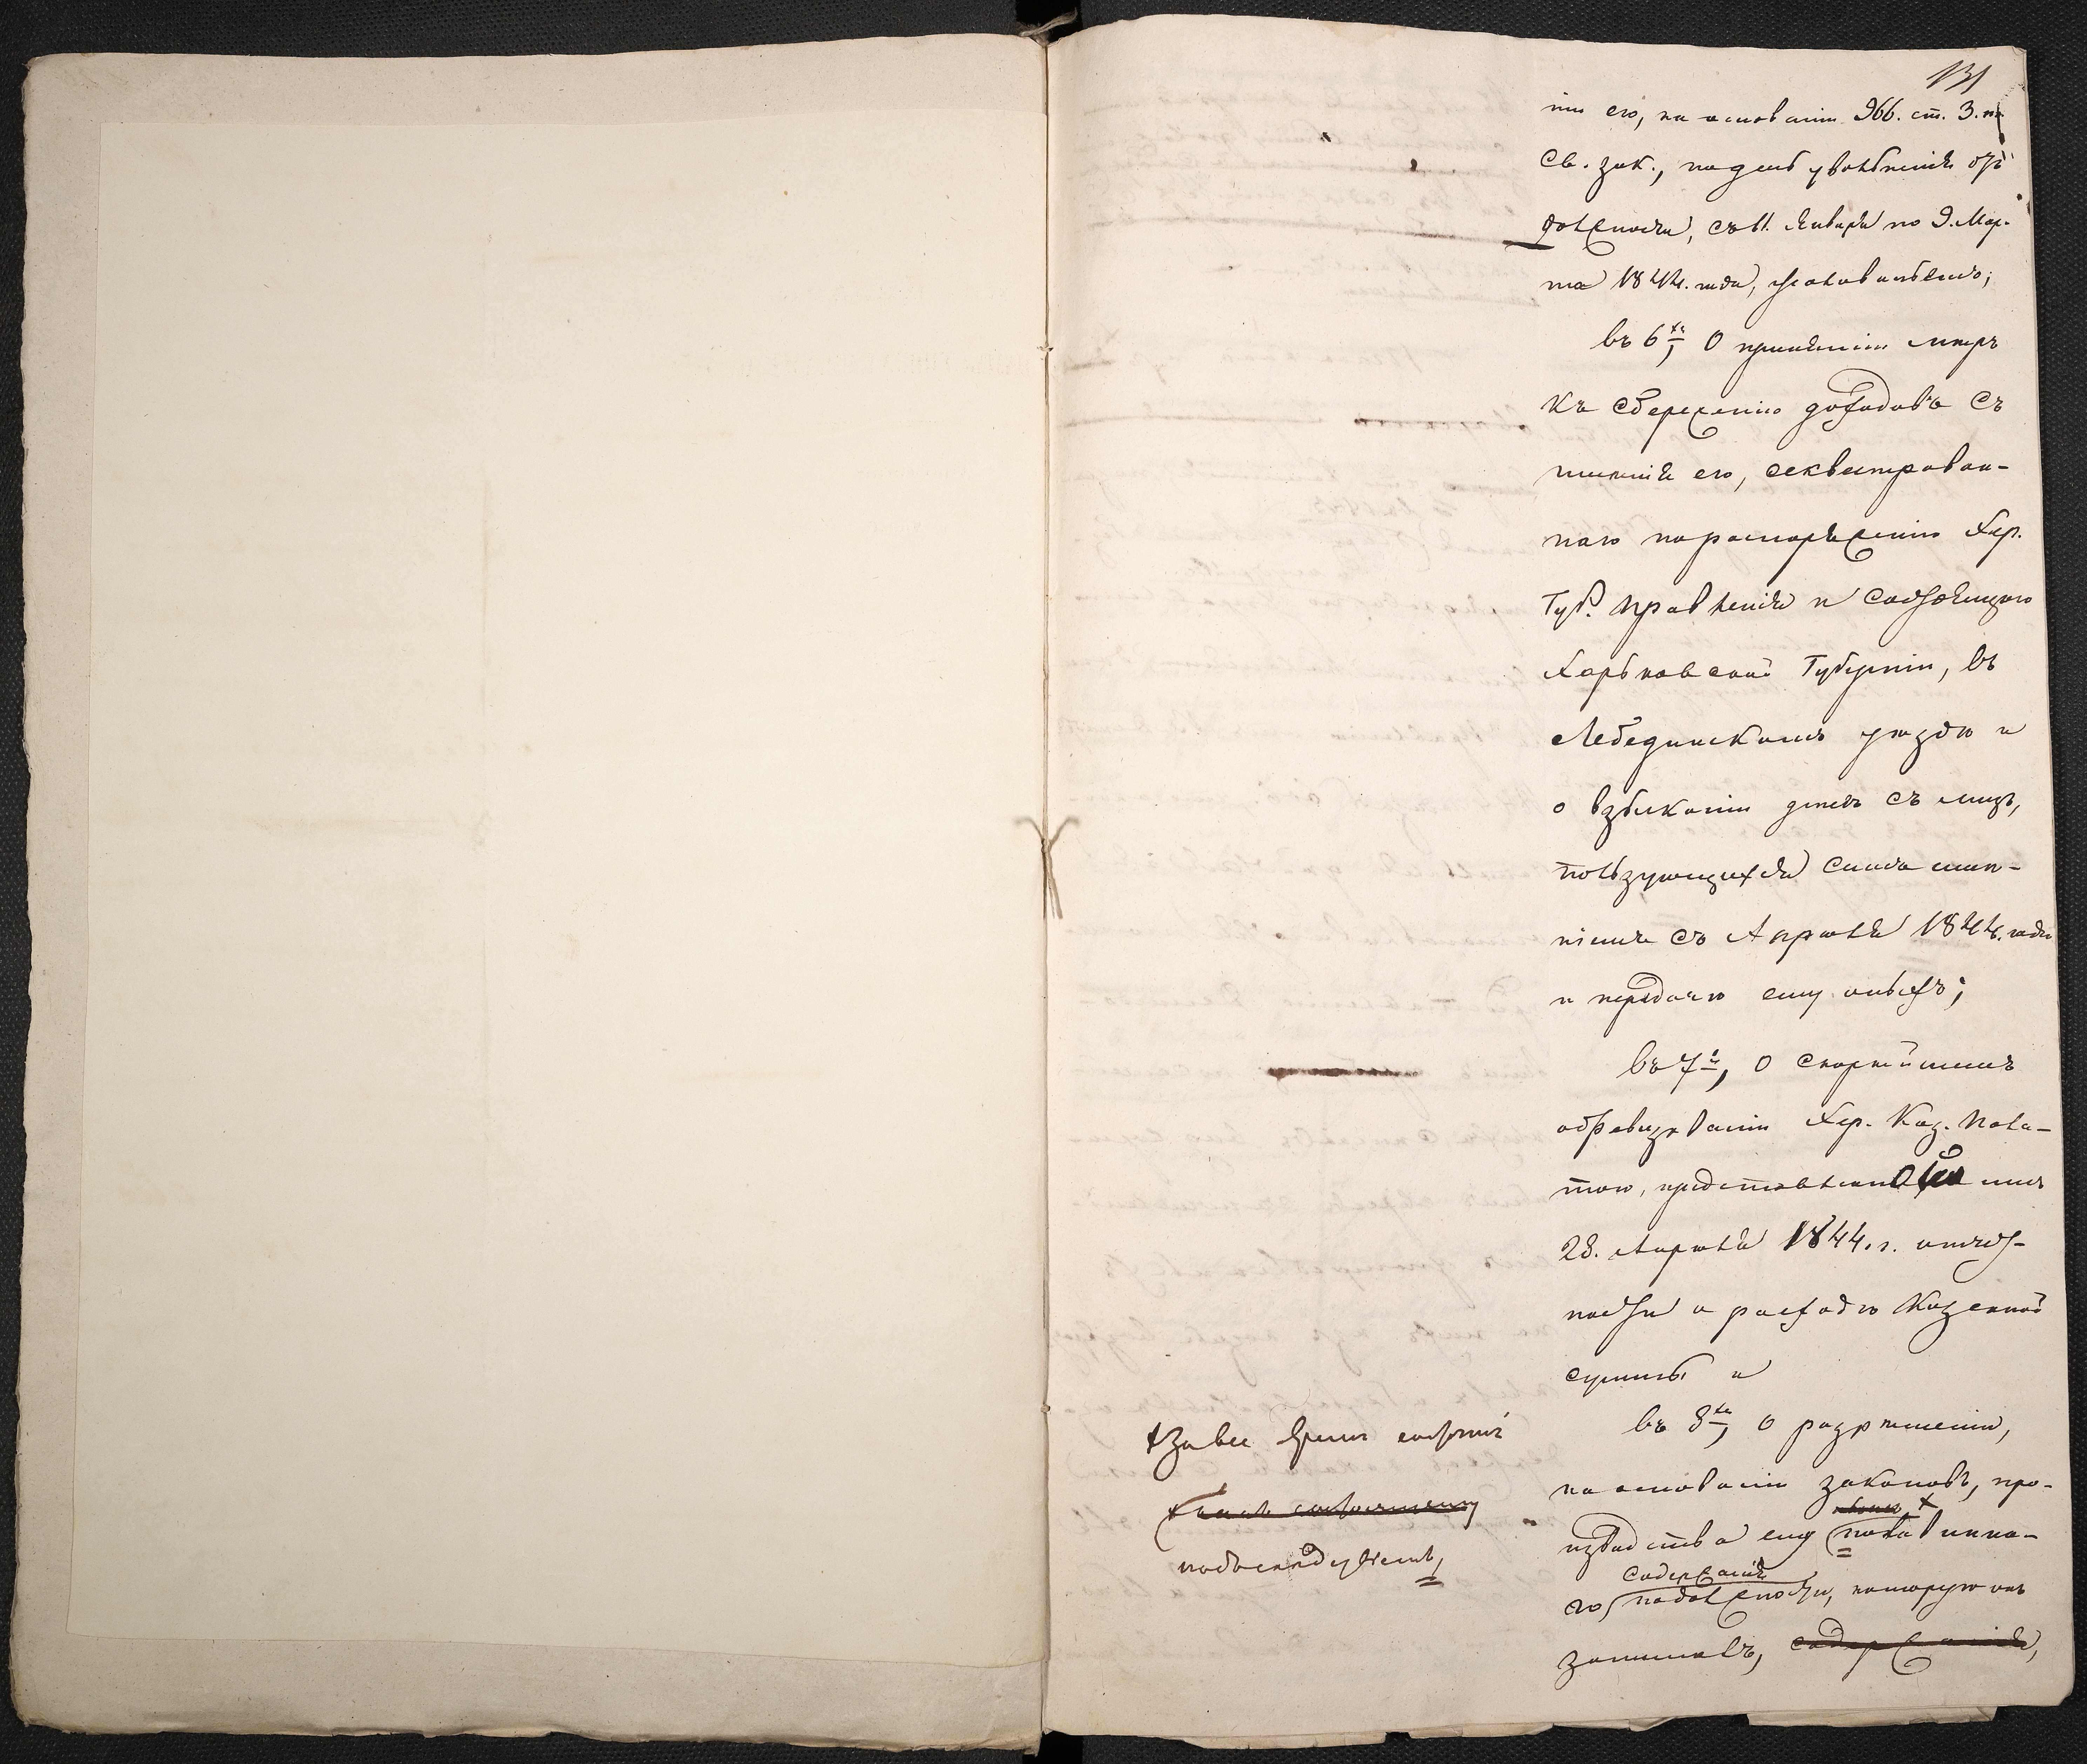 131
его, на основаніи 966. ст. 3. т.
Св. зак., по день увольненія отъ
должности, съ 11. Января по 9. Мар-
та 1844. года,
въ 6хъ, О принятіи мѣръ
къ сбереженію доходовъ съ
имѣнія его, секвестрован-
наго по распоряженію Хер.
Губ. Правленія и состоящаго
Харьковской Губерніи, въ
Лебединскомъ уѣздѣ и
о взысканіи денегъ съ лицъ,
пользующихся симъ имѣ-
ніемъ съ Апрѣля 1844. года
и передачѣ ему оныхъ;
въ 7и, О скорѣйшемъ
обревизованіи Хер. Каз. Пала-
тою, представленной имъ
28. Апрѣля 1844. г. отчет-
ности о расходѣ Казенной
суммы и
въ 8хъ, О разрѣшеніи,
на основаніи законовъ, про-
изводства ему половинна-
содержанія
го по должности, которую онъ
занималъ, содержанія,
+ За все время состоянія
подъ слѣдствіемъ,